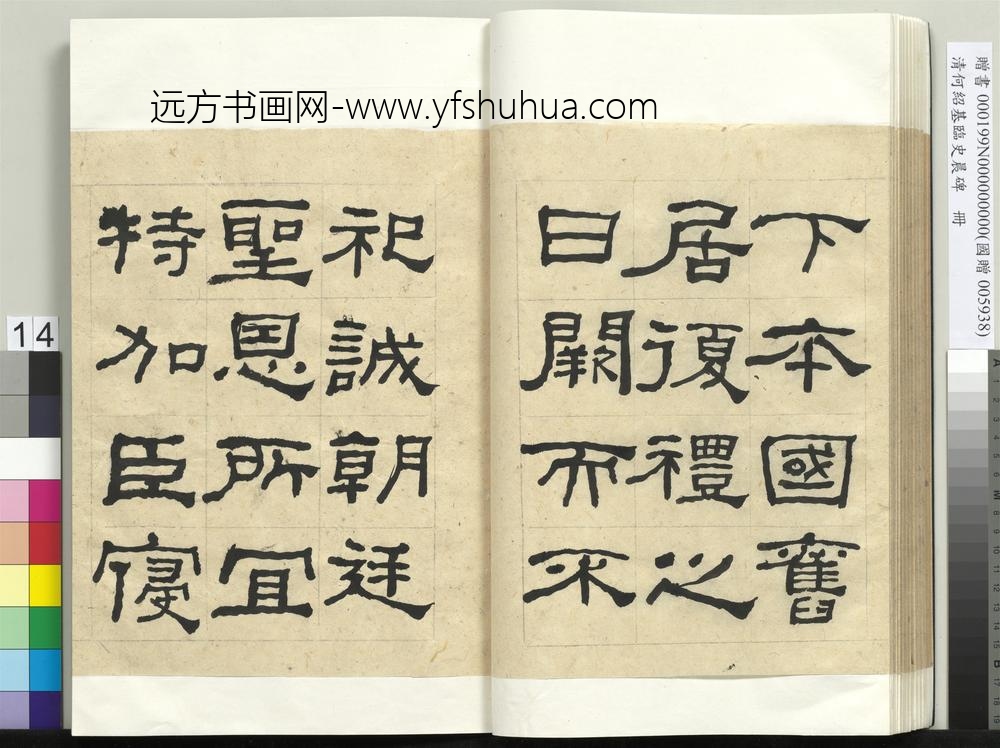 远方书画网-www.yfshuhua.com
贈書 000199N000000000(國贈 005938)
清何紹基臨史晨碑 冊
下本國舊
居復禮之
日闕而不
祀誠朝廷
聖恩所宜
特加臣寑
14